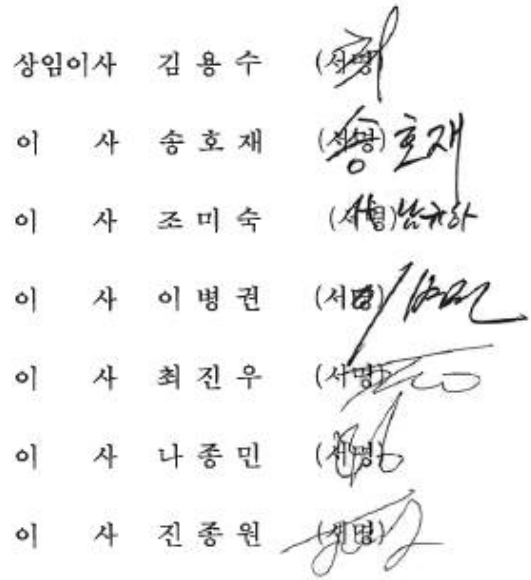 상임이사 김 용 수 (서명)
이 사 송 호 재 (서명) 송호재
이 사 조 미 숙 (서명)
이 사 이 병 권 (서명)
이 사 최 진 우 (서명)
이 사 나 종 민 (서명)
이 사 진 종 원 (서명)